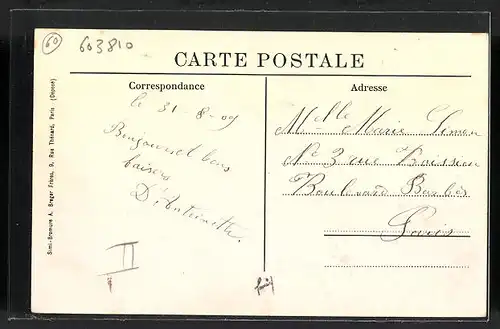 60
603810
CARTE POSTALE
Correspondance
Adresse
le 31-8-09
Bonjour et bons
baisers
D'Antoinette.
Mlle Marie Simon
No 3 rue Boissieu
Boulevard Barbès
Paris
Simi-Bromure A. Breger Frères, 9, Rue Thénard, Paris. (Déposé)
II